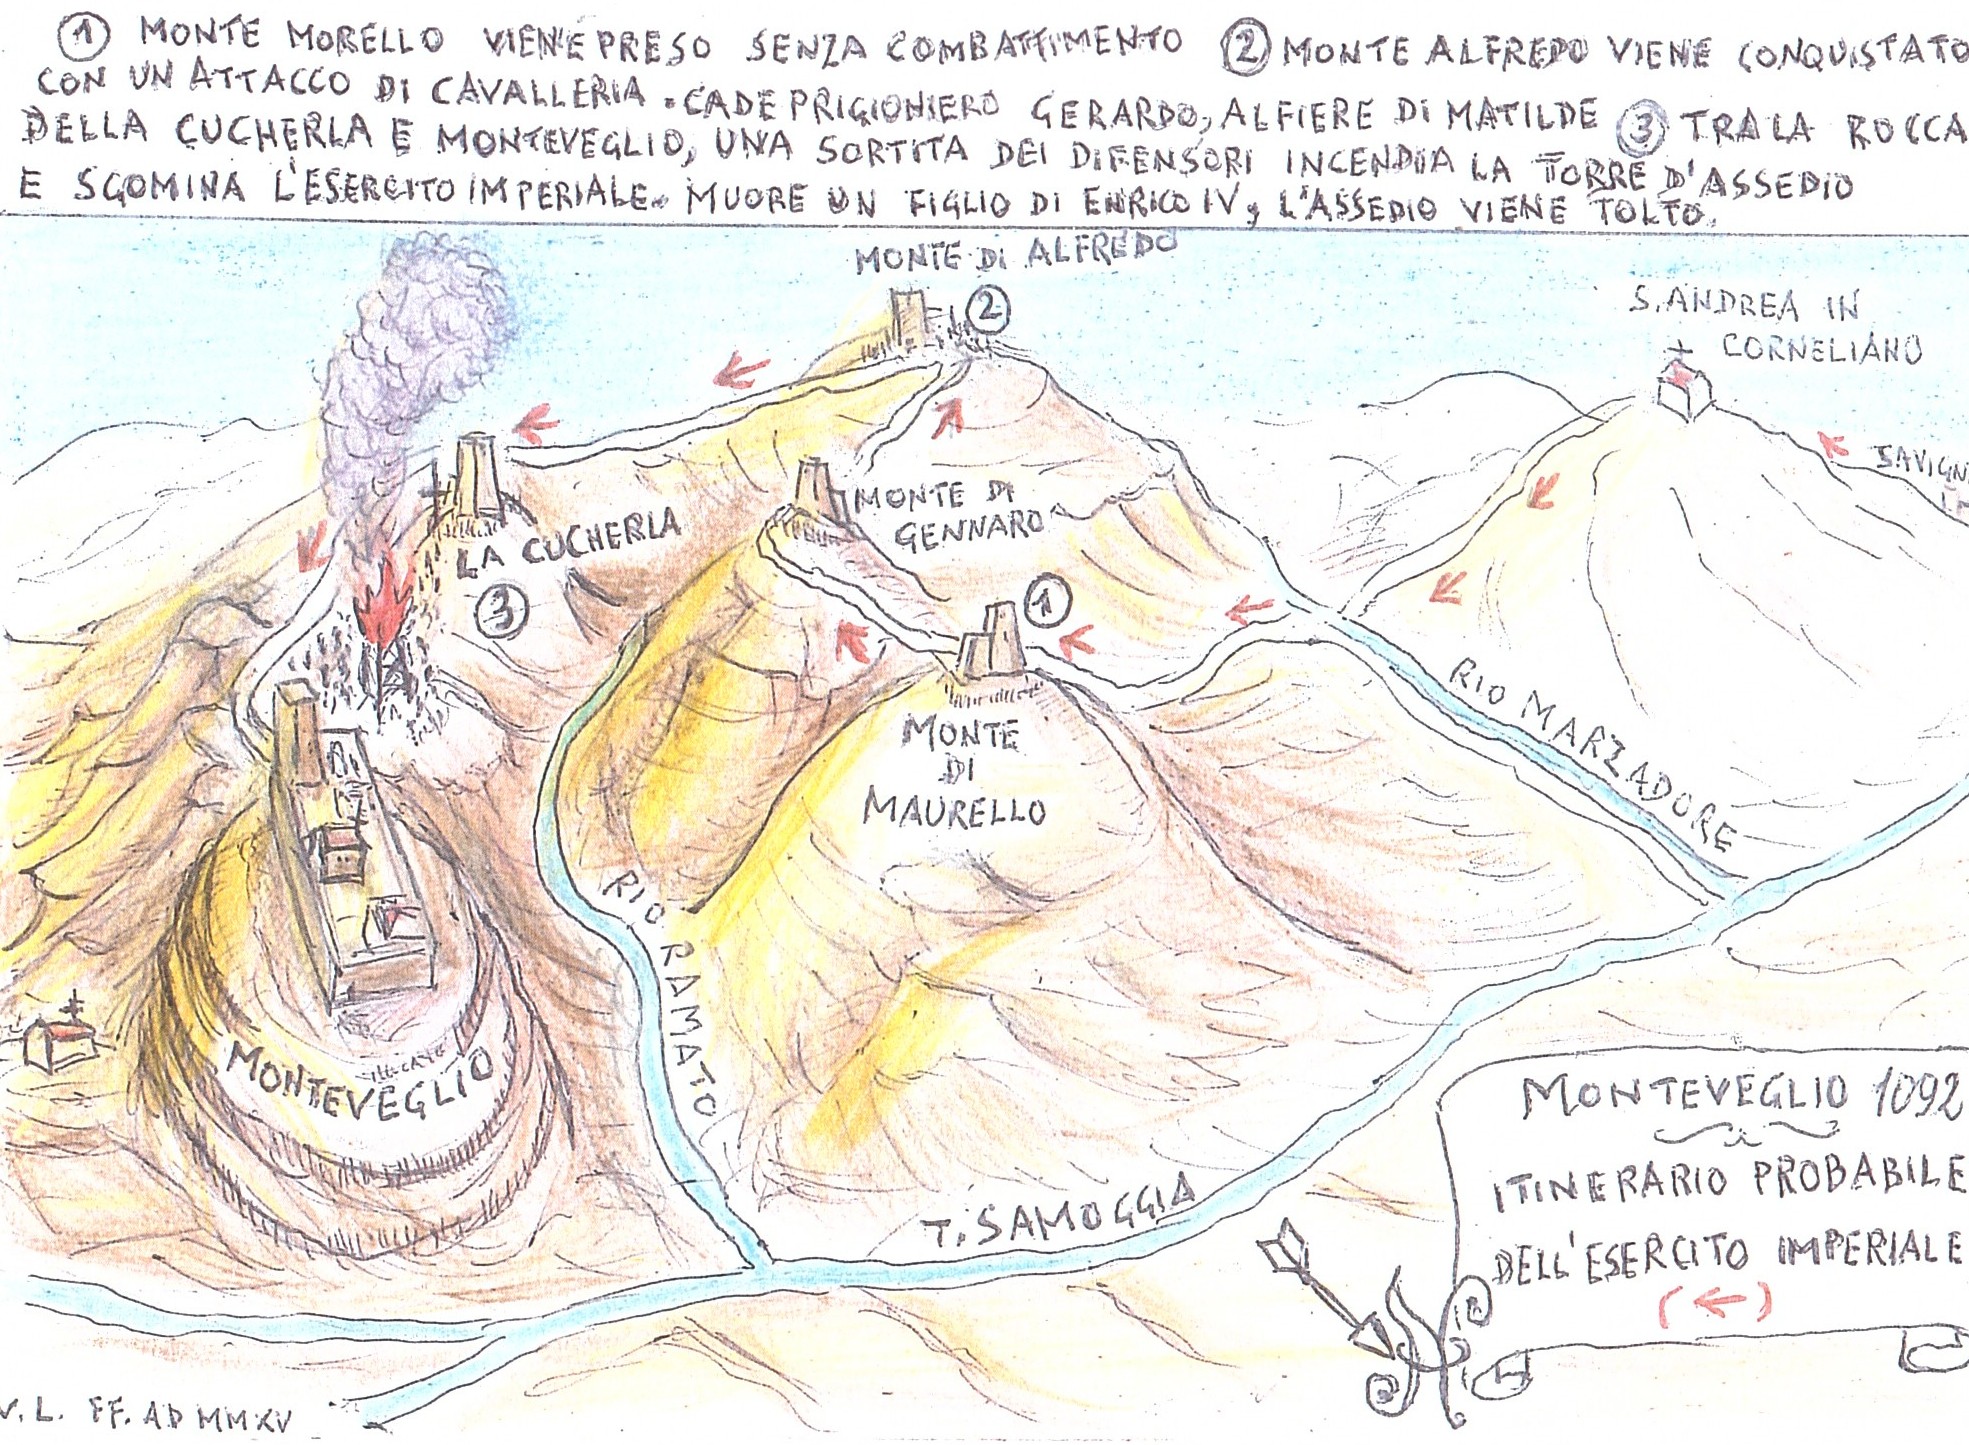 ① MONTE MORELLO VIENE PRESO SENZA COMBATTIMENTO ② MONTE ALFREDO VIENE CONQUISTATO
CON UN ATTACCO DI CAVALLERIA. CADE PRIGIONIERO GERARDO, ALFIERE DI MATILDE ③ TRA LA ROCCA
DELLA CUCHERLA E MONTEVEGLIO, UNA SORTITA DEI DIFENSORI INCENDIA LA TORRE D'ASSEDIO
E SGOMINA L'ESERCITO IMPERIALE. MUORE UN FIGLIO DI ENRICO IV, L'ASSEDIO VIENE TOLTO.
MONTE DI ALFREDO
②
S. ANDREA IN
CORNELIANO
SAVIGN
MONTE DI
GENNARO
LA CUCHERLA
③
①
MONTE
DI
MAURELLO
RIO MARZADORE
RIO RAMATO
MONTEVEGLIO
T. SAMOGGIA
MONTEVEGLIO 1092
ITINERARIO PROBABILE
DELL'ESERCITO IMPERIALE
(←)
V. L. FF. AD MMXV